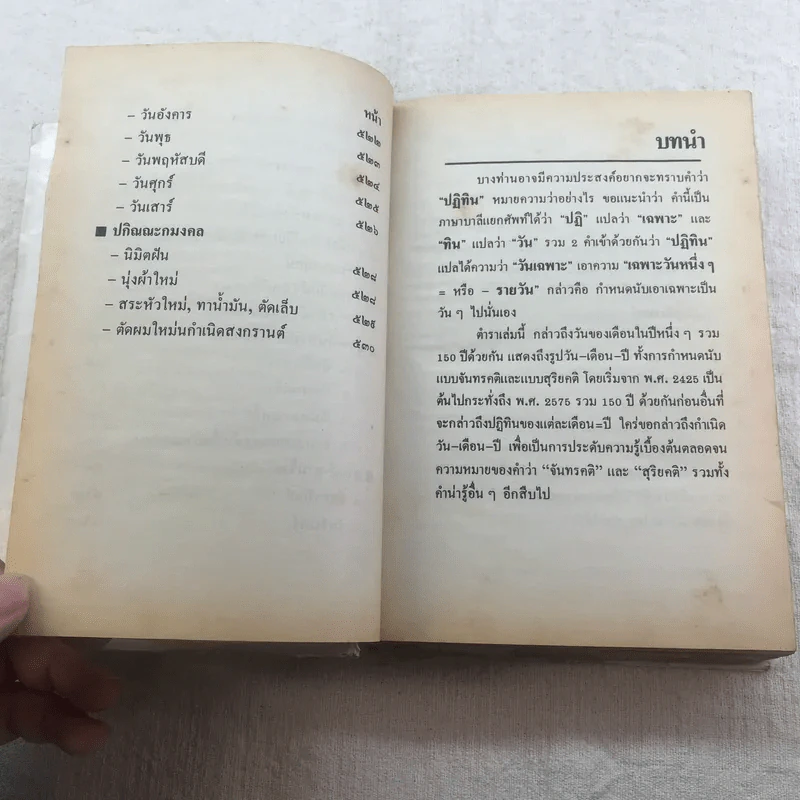 หน้า
– วันอังคาร ๕๒๒
– วันพุธ ๕๒๓
– วันพฤหัสบดี ๕๒๔
– วันศุกร์ ๕๒๕
– วันเสาร์ ๕๒๖
■ ปกิณณะกมงคล
– นิมิตฝัน ๕๒๘
– นุ่งผ้าใหม่ ๕๒๘
– สระหัวใหม่, ทาน้ำมัน, ตัดเล็บ ๕๒๙
– ตัดผมใหม่นกำเนิดสงกรานต์ ๕๓๐
บทนำ
บางท่านอาจมีความประสงค์อยากจะทราบคำว่า
“ปฏิทิน” หมายความว่าอย่างไร ขอแนะนำว่า คำนี้เป็น
ภาษาบาลีแยกศัพท์ได้ว่า “ปฏิ” แปลว่า “เฉพาะ” และ
“ทิน” แปลว่า “วัน” รวม 2 คำเข้าด้วยกันว่า “ปฏิทิน”
แปลได้ความว่า “วันเฉพาะ” เอาความ “เฉพาะวันหนึ่ง ๆ
= หรือ – รายวัน” กล่าวคือ กำหนดนับเอาเฉพาะเป็น
วัน ๆ ไปนั่นเอง
ตำราเล่มนี้ กล่าวถึงวันของเดือนในปีหนึ่ง ๆ รวม
150 ปีด้วยกัน แสดงถึงรูปวัน–เดือน–ปี ทั้งการกำหนดนับ
แบบจันทรคติและแบบสุริยคติ โดยเริ่มจาก พ.ศ. 2425 เป็น
ต้นไปกระทั่งถึง พ.ศ. 2575 รวม 150 ปี ด้วยกันก่อนอื่นที่
จะกล่าวถึงปฏิทินของแต่ละเดือน=ปี ใคร่ขอกล่าวถึงกำเนิด
วัน–เดือน–ปี เพื่อเป็นการประดับความรู้เบื้องต้นตลอดจน
ความหมายของคำว่า “จันทรคติ” และ “สุริยคติ” รวมทั้ง
คำน่ารู้อื่น ๆ อีกสืบไป